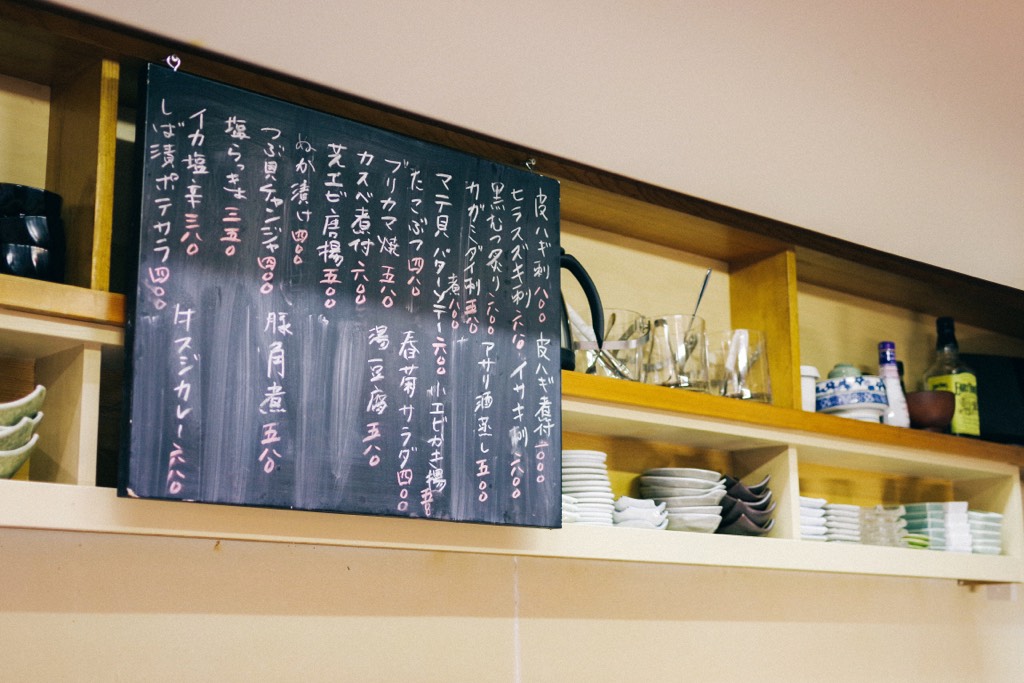 皮ハギ刺 八〇〇 皮ハギ煮付 一〇〇〇
ヒラスズキ刺 六八〇 イサキ刺 六〇〇
黒むつ炙り 六〇〇 アサリ酒蒸し 五〇〇
カガミダイ刺 五八〇
煮八〇〇
マテ貝バターソテー 六〇〇 小エビカキ揚
たこぶつ 四八〇 春菊サラダ 四〇〇
ブリカマ焼 五八〇 湯豆腐 五八〇
カスベ煮付 六〇〇
芝エビ唐揚 五〇〇
ぬか漬け 四〇〇
つぶ貝チャンジャ 四〇〇 豚角煮 五八〇
塩らっきょ 三五〇
イカ塩辛 三八〇
しば漬ポテカラ 四〇〇 牛スジカレー 六八〇